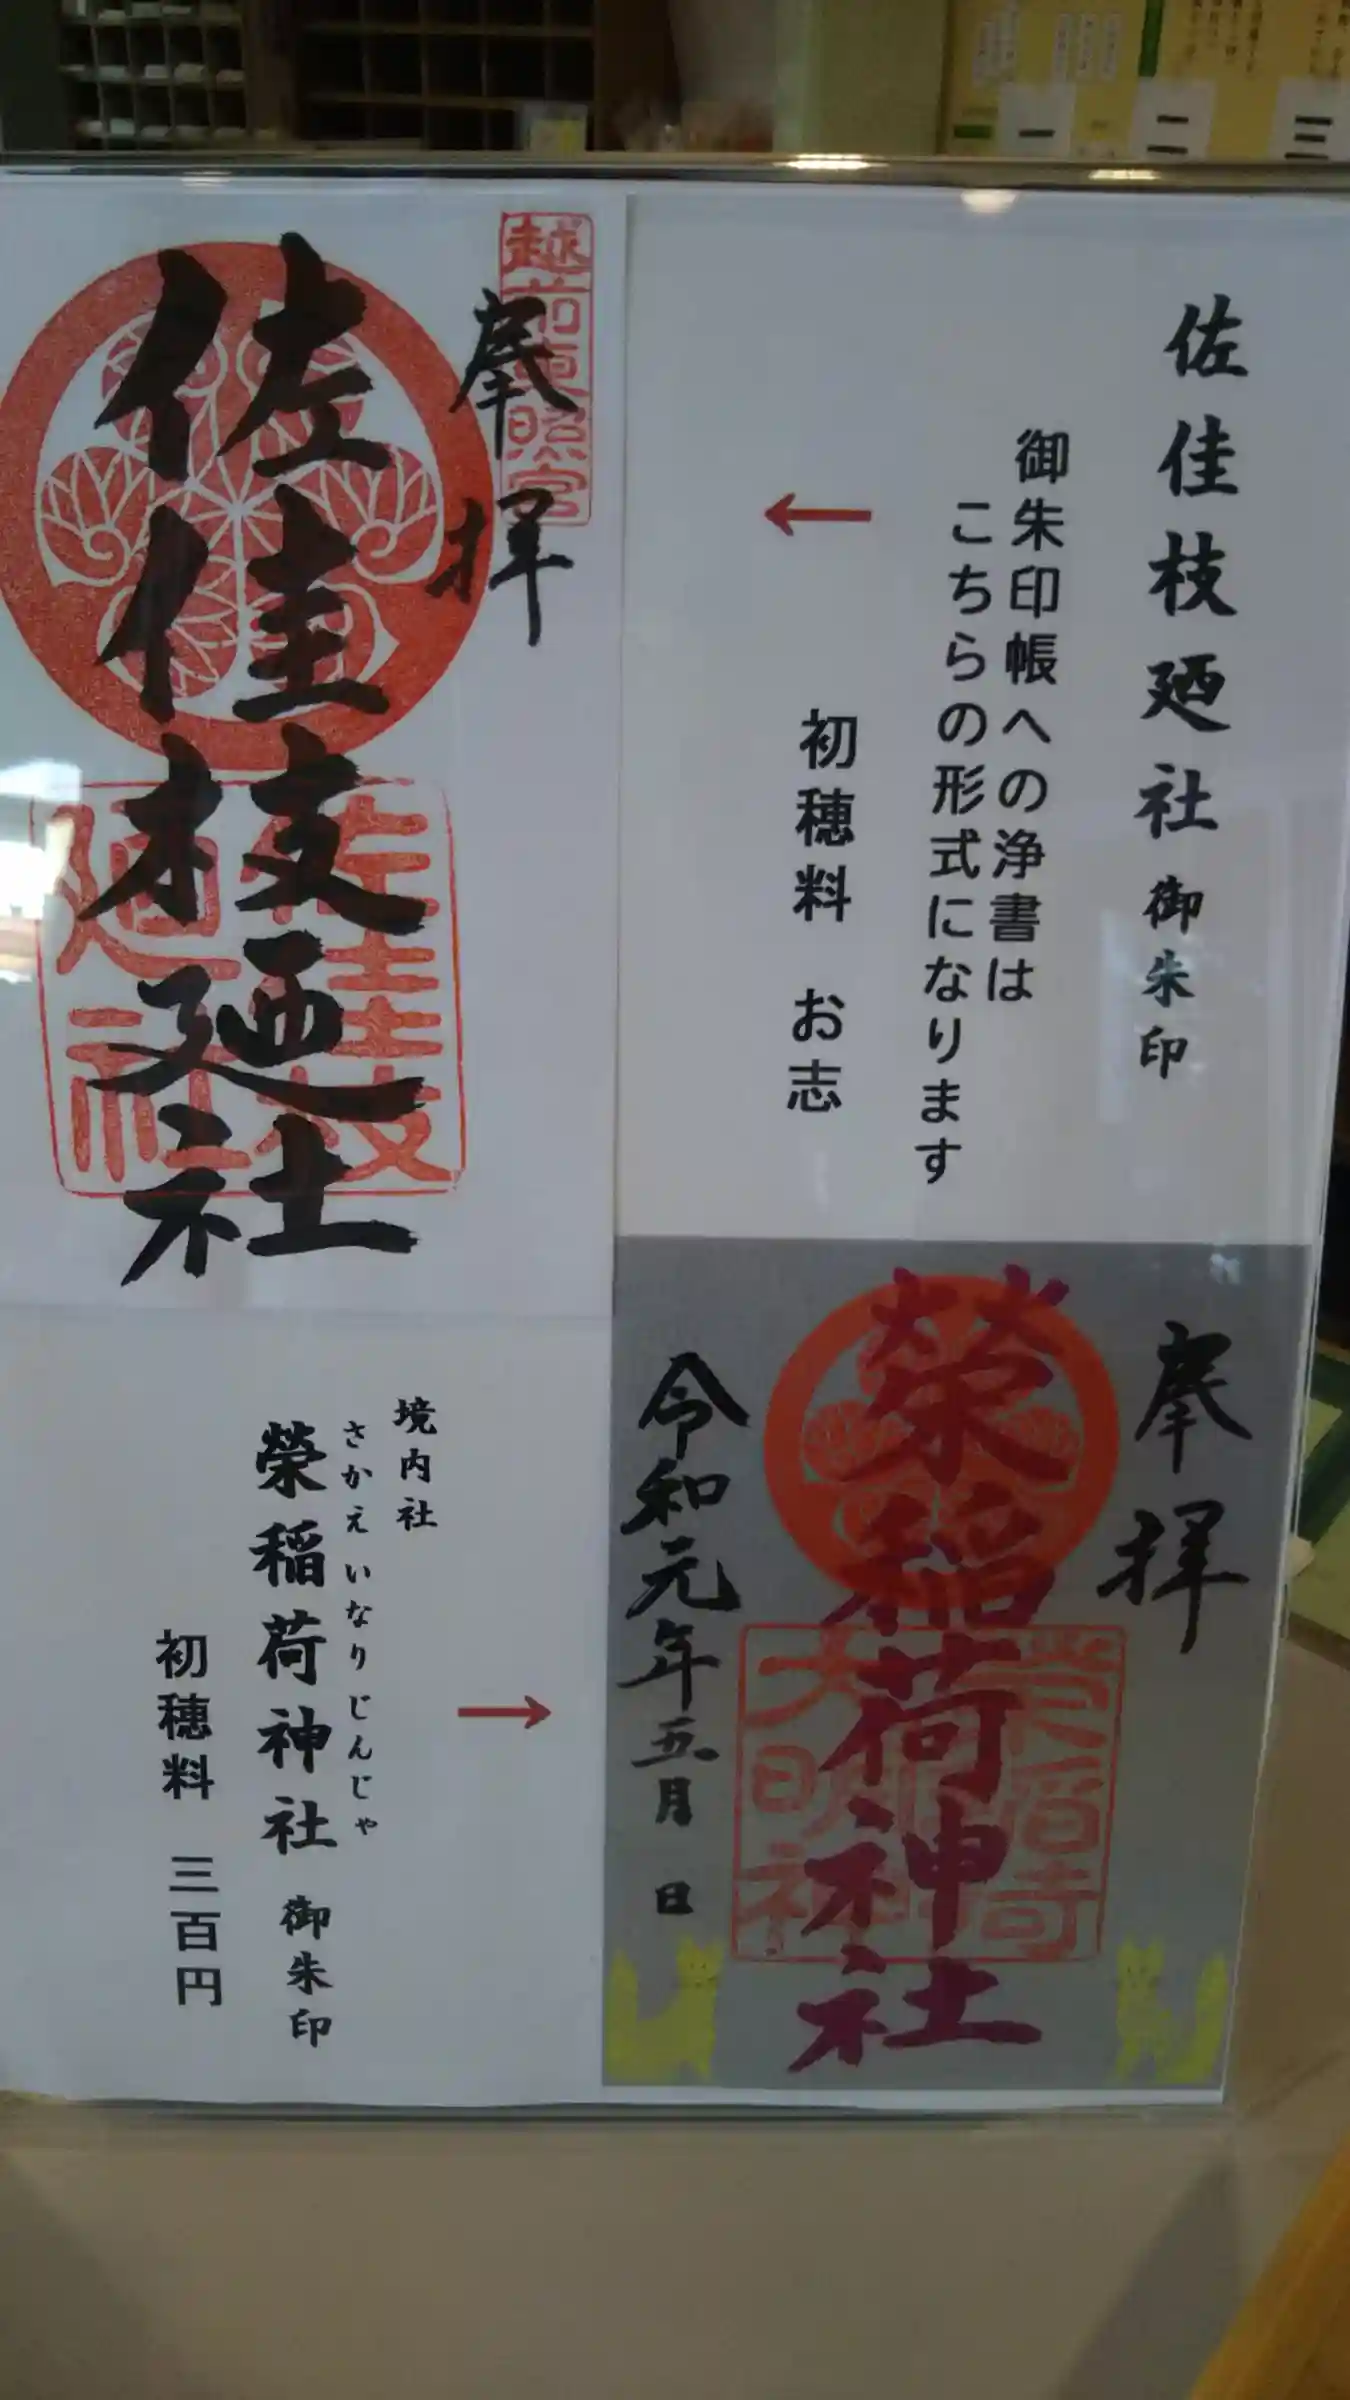 佐佳枝廼社 御朱印
御朱印帳への浄書は
こちらの形式になります
初穂料 お志
奉拝
越前東照宮
佐佳枝廼社
佐佳枝
廼社
奉拝
榮稲荷神社
令和元年五月 日
境内社
さかえいなりじんじゃ
榮稲荷神社 御朱印
初穂料 三百円
一
二
三